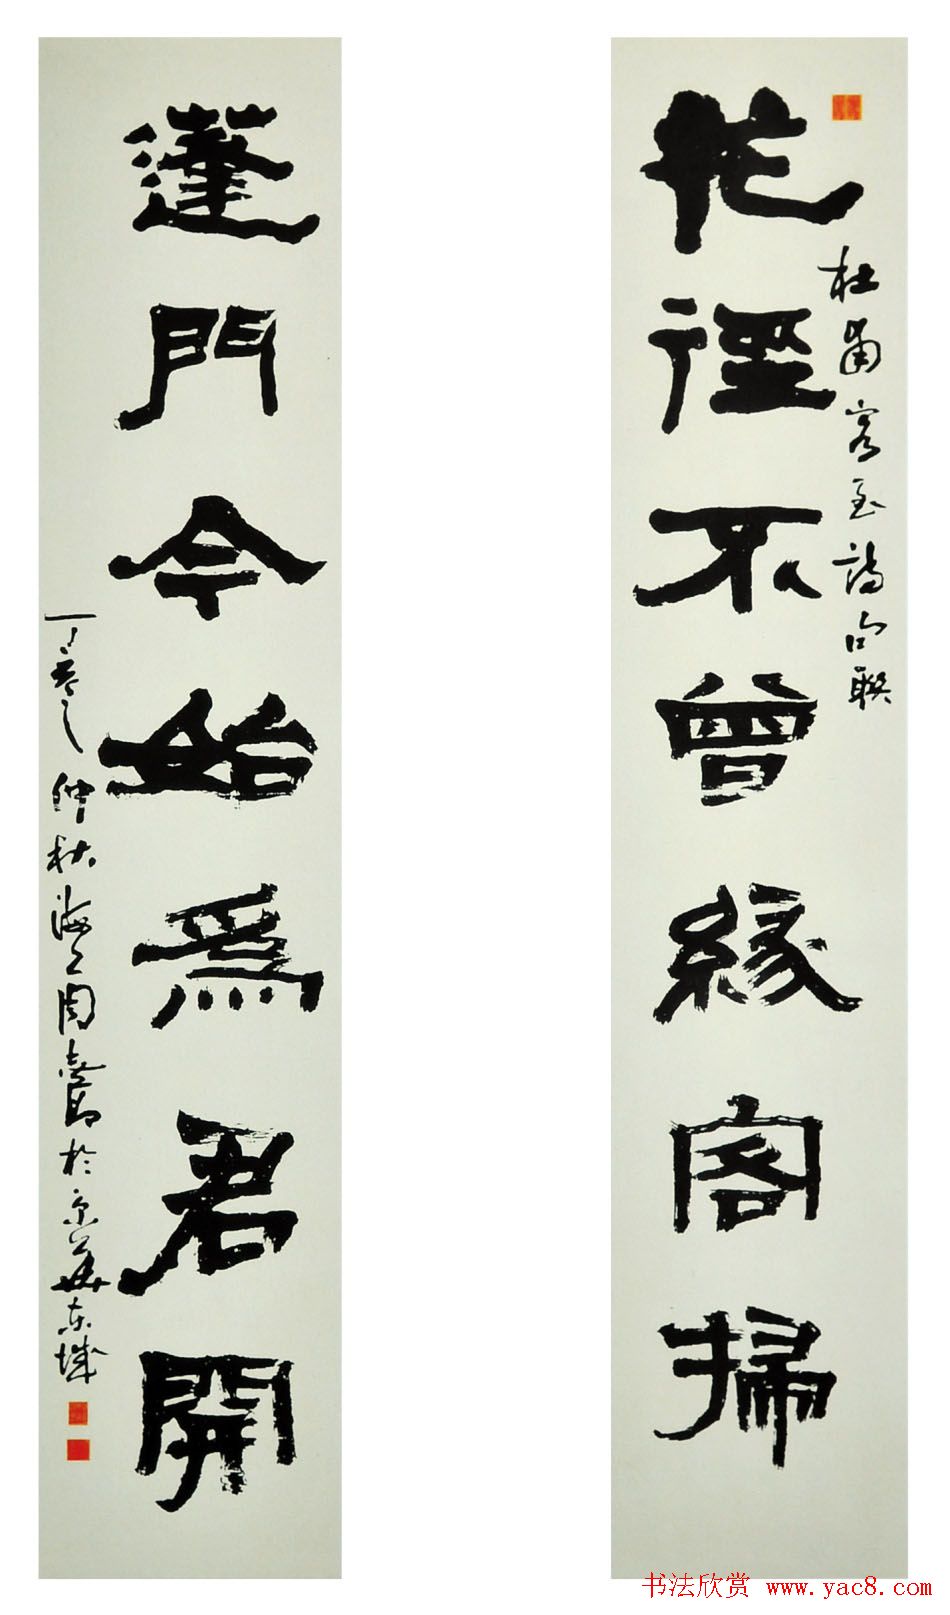 花徑不曾緣客掃
杜甫客至詩句聯
蓬門今始爲君開
丁亥仲秋海上周於京華东城
书法欣赏 www.yac8.com